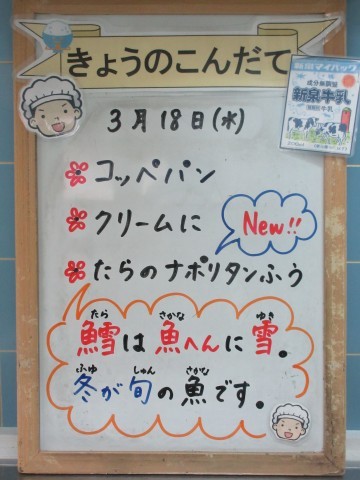 きょうのこんだて
3月18日(水)
コッペパン
クリームに
New!!
たらのナポリタンふう
鱈は魚へんに雪。
冬が旬の魚です。
たら さかな ゆき
ふゆ しゅん さかな
新泉牛乳